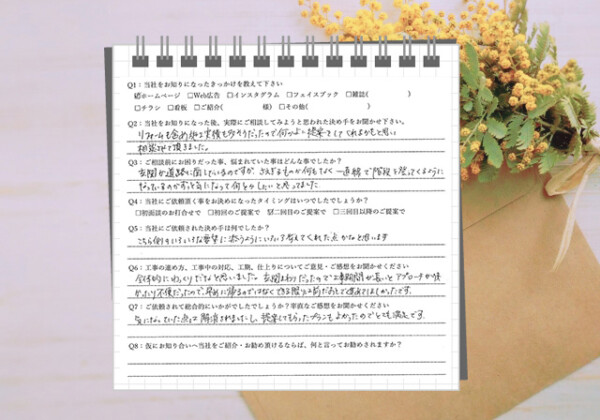 Q1：当社をお知りになったきっかけを教えて下さい
☑ホームページ　□Web広告　□インスタグラム　□フェイスブック　□雑誌(　　　　)
□チラシ　□看板　□ご紹介(　　　　様)　□その他(　　　　)
Q2：当社をお知りになった後、実際にご相談してみようと思われた決め手をお聞かせ下さい。
リフォームも含め施工実績も
相談させて頂きました。
Q3：ご相談前にお困りだった事、悩まれていた事はどんな事でしたか？
玄関が道路に面しているのですが、さえぎるものが何もなく一直線で階段を登ってくるように
なっているのがずっと気になって何とかしたいと思ってました。
Q4：当社にご依頼頂く事をお決めになったタイミングはいつでしたでしょうか？
□初面談のお打合せで　□初回のご提案で　☑二回目のご提案で　□三回目以降のご提案で
Q5：当社にご依頼された決め手は何でしたか？
こちら側のいろいろな要望に添うようにいろいろ考えてくれた点かなと思います
Q6：工事の進め方、工事中の対応、工期、仕上りについてご意見・ご感想をお聞かせください
全体的にゆっくりだなと思いました。玄関まわりだったので工事期間が長いとアプローチが
不便だったので早めに
Q7：ご依頼されて総合的にいかがでしたでしょうか？率直なご感想をお聞かせください
気になっていた点は解消されましたし、提案してもらったプランもよかったのでとても満足です。
Q8：仮にお知り合いへ当社をご紹介・お勧め頂けるならば、何と言ってお勧めされますか？